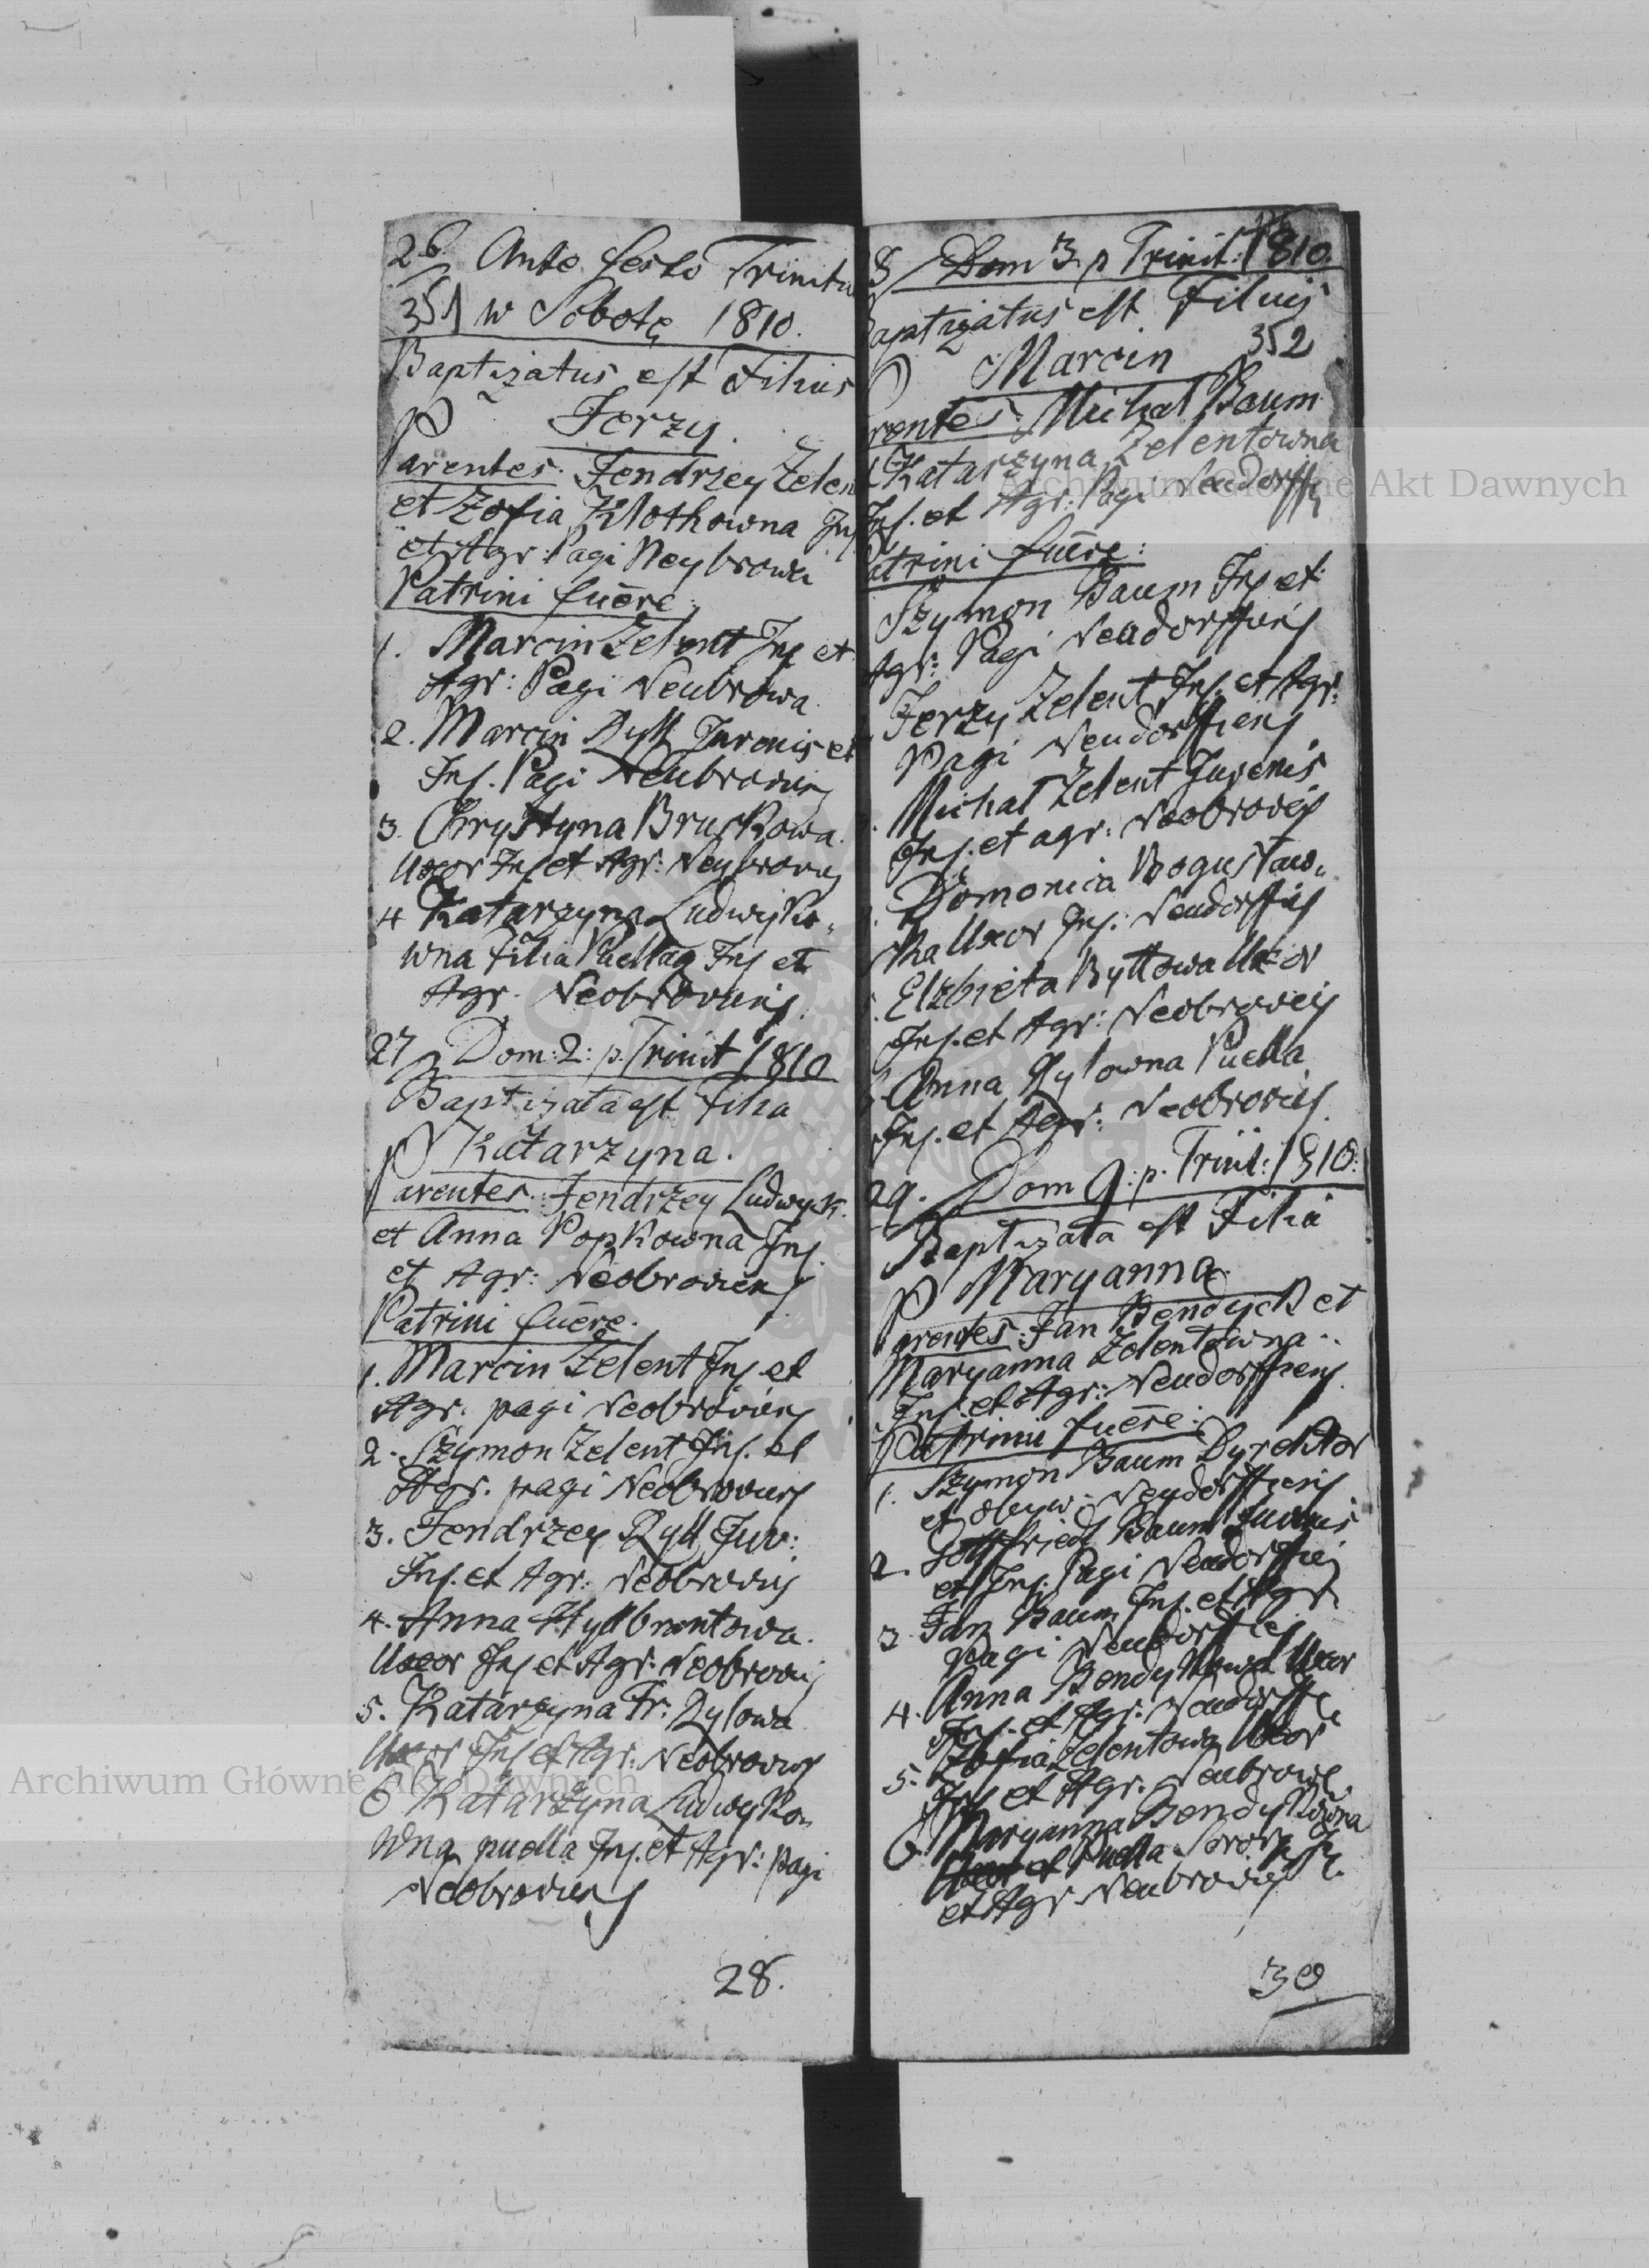 26. Ante festo Trinita
351 w Sobotę 1810.
Baptizatus est Filius
Jerzy.
Parentes. Jendrzey Zelen
et Zofia Klothowna Inq
et Agr: Pagi Neybrowa
Patrini fuēre.
1. Marcin Zelent Inq et
Agr: Pagi Neubrowa
2. Marcin Ryll Juvenis et
Inq. Pagi Neubroviens
3. Chrystyna Bruskowa.
Uxor Inq et Agr: Neybroviens
4 Katarzyna Ludwiko-
wna Filia Puella Inq et
Agr. Neobroviens.
27 Dom: 2: p. Trinit 1810
Baptizata est Filia
Katarzyna.
Parentes. Jendrzey Ludwyk.
et Anna Popkowna Inq.
et Agr: Neobroviens
Patrini fuēre.
1. Marcin Zelent Inq. et
Agr. pagi Neobroviens
2. Szymon Zelent Inq. et
Agr. pagi Neobroviens
3. Jendrzey Ryll Juv:
Inq. et Agr: Neobroviens
4. Anna Hyllbrantowa.
Uxor Inq et Agr: Neobroviens
5. Katarzyna Fr: Rylowa
Uxor Inq et Agr: Neobroviens
6 Katarzyna Ludwyko-
wna puella Inq. et Agr: pagi
Neobroviens
28.
8 Dom 3 p Trinit: 1810.
aptizatus est Filius
352
Marcin
rentes: Michal Baum
Katarzyna Zelentowna
Inq. et Agr: Pagi Neudorff
atrini fuēre:
Szymon Baum Inq et
Agr: Pagi Neudorffiens
Jerzy Zelent Inq. et Agr:
Pagi Neudorffiens
Michal Zelent Juvenis
Inq. et agr: Neobroviens
Domonica Boguslaw-
ska Uxor Inq: Neudorffiens
Elzbieta Ryllowa Uxor
Inq. et Agr: Neobroviens
Anna Rylowna Puella
Inq. et Agr: Neobroviens.
29. Dom 9: p. Trinit: 1810:
Baptizata est Filia
Maryanna.
Parentes: Jan Bendyck et
Maryanna Zelentowna
Inq. et Agr: Neudorffiens.
Patrini fuēre:
1. Szymon Baum Dyrektor
et obyw: Neydorffiens
2. Gottfriedt Baum Juvenis
et Inq. Pagi Neudorffiens
3. Jan Baum Inq. et Agr.
Pagi Neudorffiens
4. Anna Bendykowa Uxor
Inq. et Agr: Neudorff
5. Zofia Zelentowa Uxor
Inq et Agr. Neubrow
6. Maryanna Bendykowna
et Puella Soror
et Agr Neubroviens
30
Archiwum Główne Akt Dawnych
Archiwum Główne Akt Dawnych